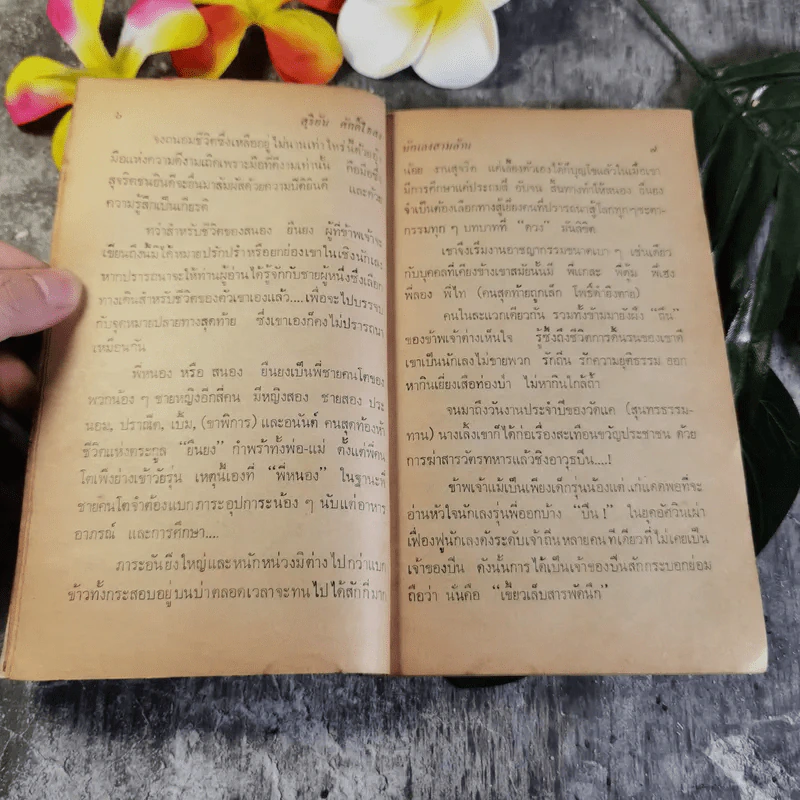 ๖ สุริยัน ศักดิ์ไธสง
จงถนอมชีวิตซึ่งเหลืออยู่ไม่นานเท่าไหร่นี้ด้วย
มือแห่งความดีงามเถิดเพราะมือที่ดีงามเท่านั้น คือมือซึ่ง
สุจริตชนยินดีจะยื่นมาสัมผัสด้วยความปิติยินดี และด้วย
ความรู้สึกเป็นเกียรติ
ทว่าสำหรับชีวิตของสนอง ยืนยง ผู้ที่ข้าพเจ้าจะ
เขียนถึงนี้มิได้หมายปรักปรำหรือยกย่องเขาในเชิงนักเลง
หากปรารถนาจะให้ท่านผู้อ่านได้รู้จักกับชายผู้หนึ่งซึ่งเลือก
ทางเดินสำหรับชีวิตของตัวเขาเองแล้ว....เพื่อจะไปบรรจบ
กับจุดหมายปลายทางสุดท้าย ซึ่งเขาเองก็คงไม่ปรารถนา
เหมือนกัน
พี่หนอง หรือ สนอง ยืนยงเป็นพี่ชายคนโตของ
พวกน้อง ๆ ชายหญิงอีกสี่คน มีหญิงสอง ชายสอง ประ
นอม, ปราณีต, เบิ้ม, (ขาพิการ) และอนันต์ คนสุดท้องห้า
ชีวิตแห่งตระกูล "ยืนยง" กำพร้าทั้งพ่อ-แม่ ตั้งแต่พี่คน
โตเพิ่งย่างเข้าวัยรุ่น เหตุนี้เองที่ "พี่หนอง" ในฐานะพี่
ชายคนโตจำต้องแบกภาระอุปการะน้อง ๆ นับแต่อาหาร
อาภรณ์ และการศึกษา....
ภาระอันยิ่งใหญ่และหนักหน่วงมิต่างไปกว่าแบก
ข้าวทั้งกระสอบอยู่บนบ่าตลอดเวลาจะทนไปได้สักกี่มาก
นักเลงสามย่าน ๗
น้อย งานสุจริต แต่เลี้ยงตัวเองได้ก็บุญโขแล้วในเมื่อเขา
มีการศึกษาแค่ประถมสี่ อับจน สิ้นทางทำให้สนอง ยืนยง
จำเป็นต้องเลือกทางสู้เยี่ยงคนที่ปรารถนาสู้โลกทุกๆชะตา
กรรมทุก ๆ บทบาทที่ "ดวง" มันลิขิต
เขาจึงเริ่มงานอาชญากรรมขนาดเบา ๆ เช่นเดียว
กับบุคคลที่เคียงข้างเขาสมัยนั้นมี พี่แกละ พี่ตุ้ม พี่เฮง
พี่ลอง พี่ไท (คนสุดท้ายถูกเล็ก โพธิ์ดำยิงตาย)
คนในละแวกเดียวกัน รวมทั้งข้ามมายังฝั่ง "ถิ่น"
ของข้าพเจ้าต่างเห็นใจ รู้ซึ้งถึงชีวิตการดิ้นรนของเขาดี
เขาเป็นนักเลงไม่ขายพวก รักถิ่น รักความยุติธรรม ออก
หากินเยี่ยงเสือท่องป่า ไม่หากินใกล้ถ้ำ
จนมาถึงวันงานประจำปีของวัดแค (สุนทรธรรม-
ทาน) นางเลิ้งเขาก็ได้ก่อเรื่องสะเทือนขวัญประชาชน ด้วย
การฆ่าสารวัตรทหารแล้วชิงอาวุธปืน....!
ข้าพเจ้าแม้เป็นเพียงเด็กรุ่นน้องแต่แก่แดดพอที่จะ
อ่านหัวใจนักเลงรุ่นพี่ออกบ้าง "ปืน!" ในยุคอัศวินเผ่า
เฟื่องฟูนักเลงดังระดับเจ้าถิ่นหลายคนทีเดียวที่ไม่เคยเป็น
เจ้าของปืน ดังนั้นการได้เป็นเจ้าของปืนสักกระบอกย่อม
ถือว่า นั่นคือ "เขี้ยวเล็บสารพัดนึก"